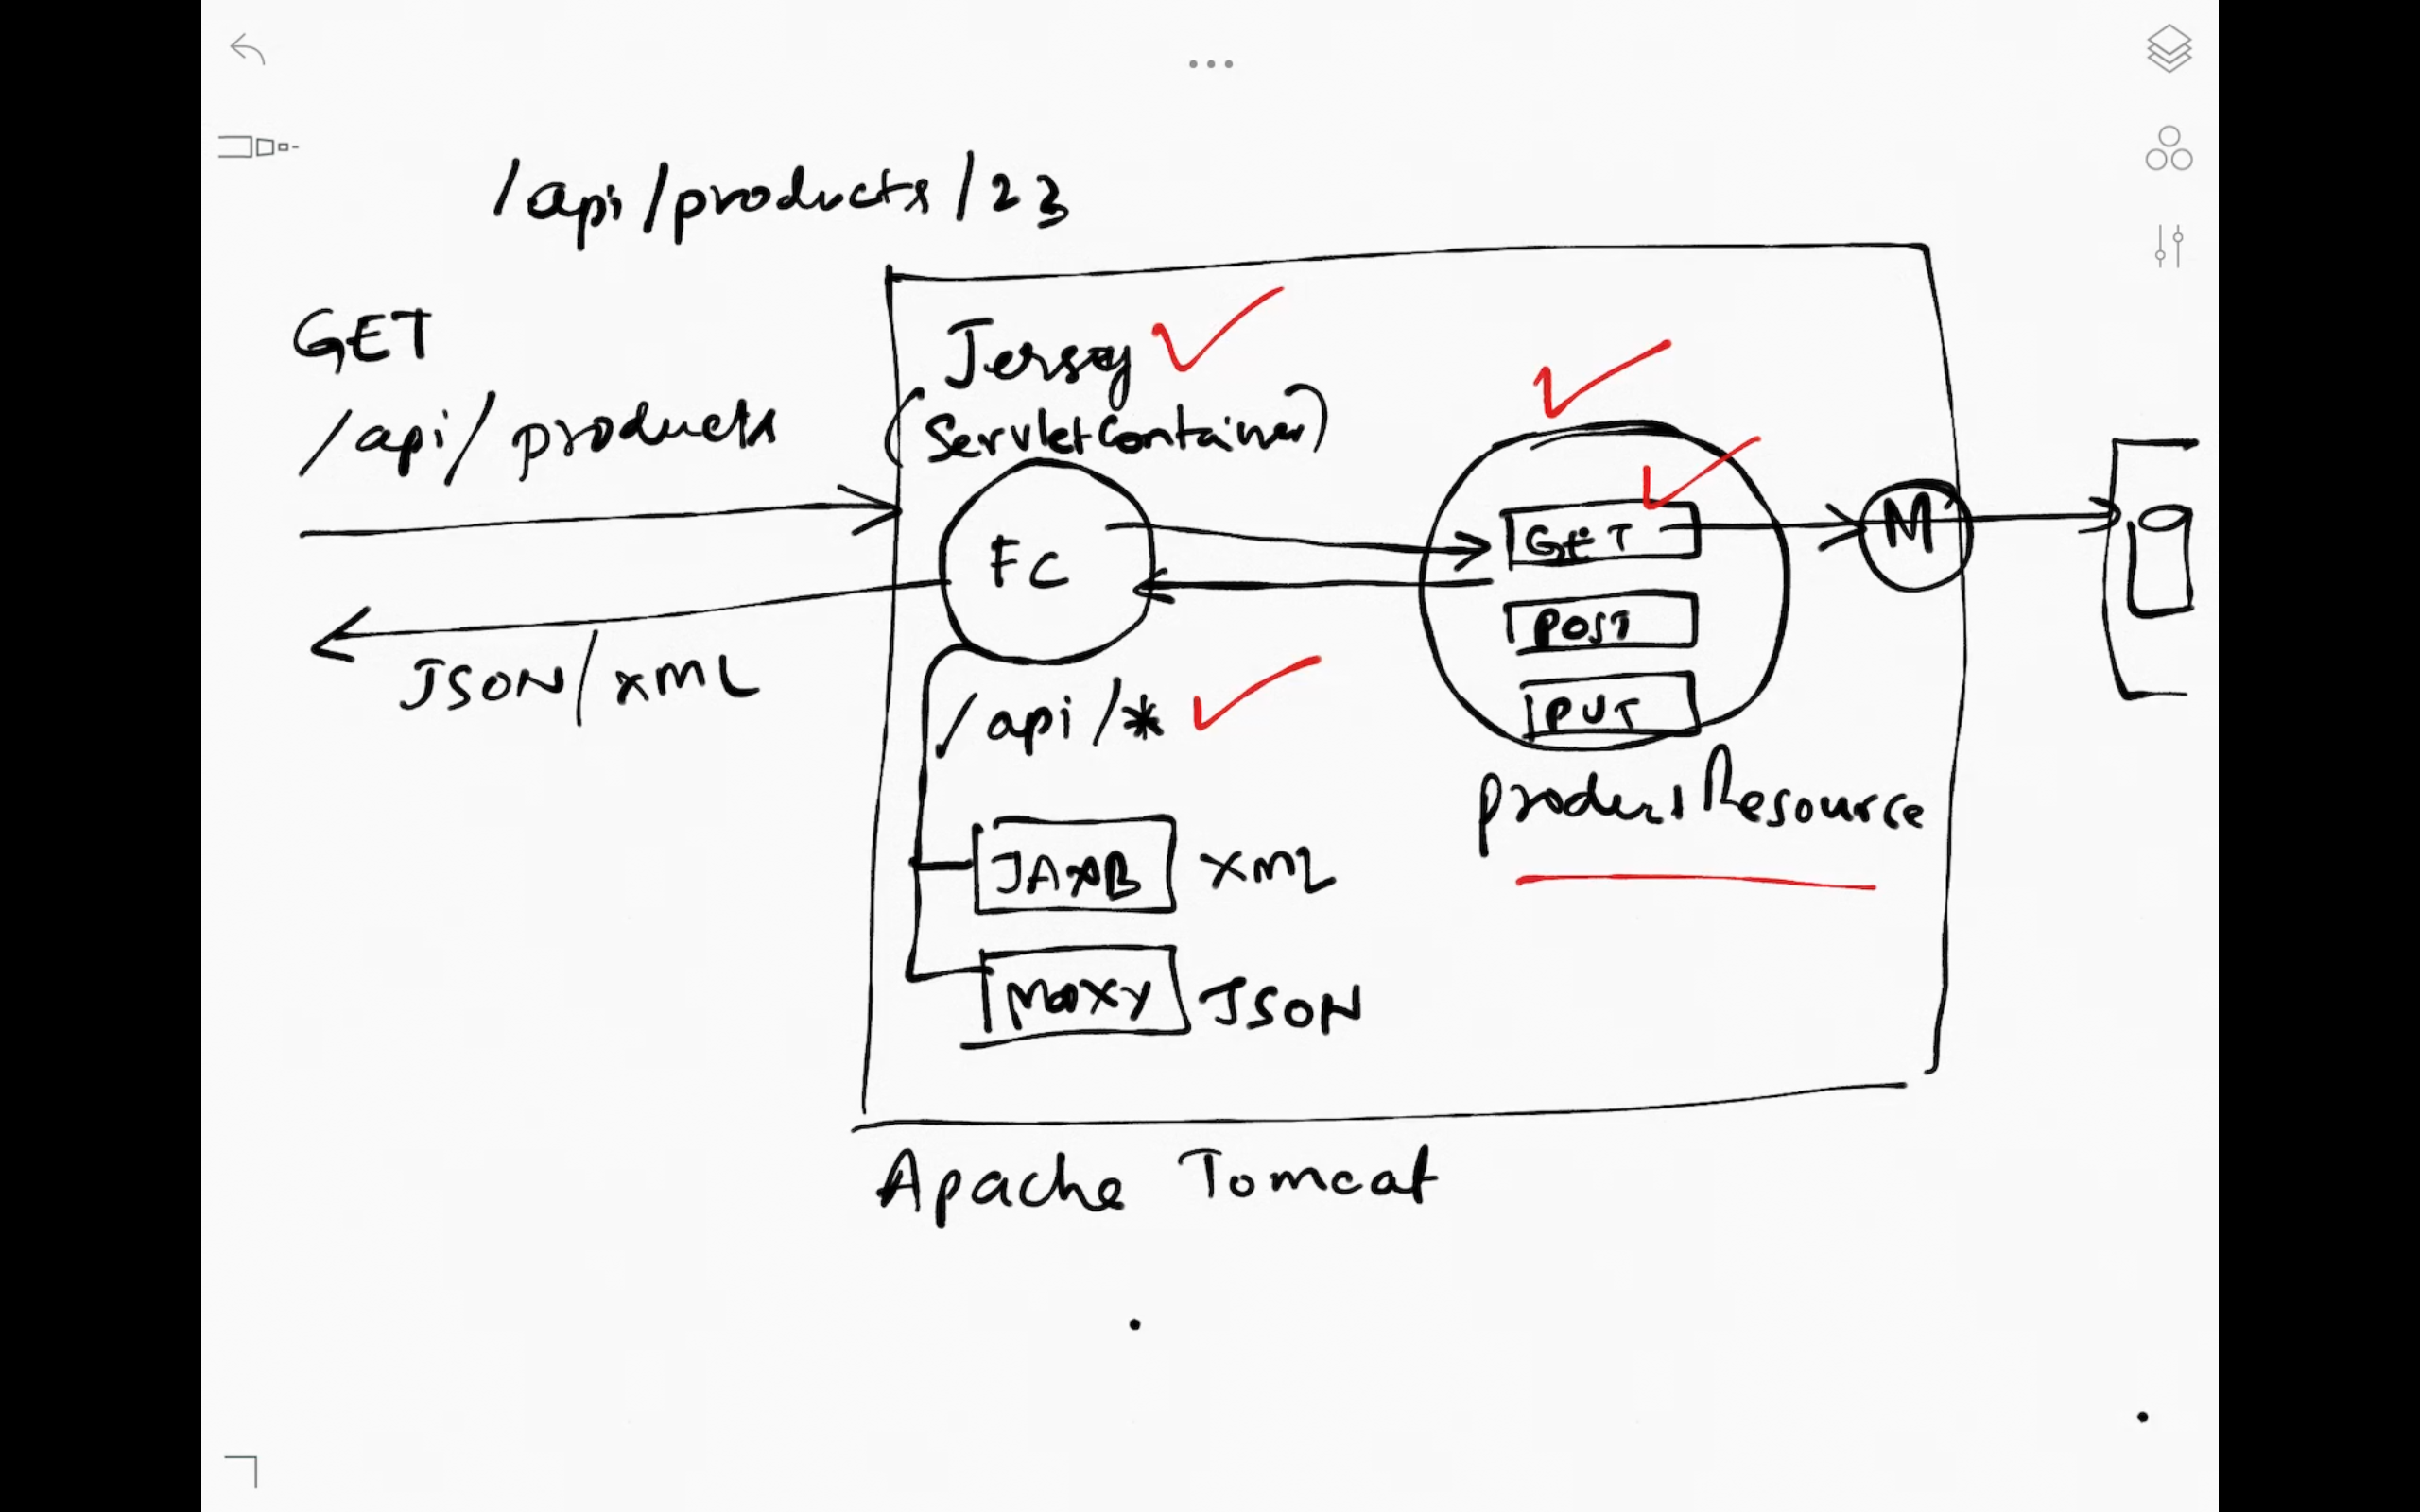 /api/products/23
GET
/api/products
JSON/XML
Jersey
(ServletContainer)
FC
/api/*
JAXB XML
MOXY JSON
GET
POST
PUT
M
productResource
Apache Tomcat